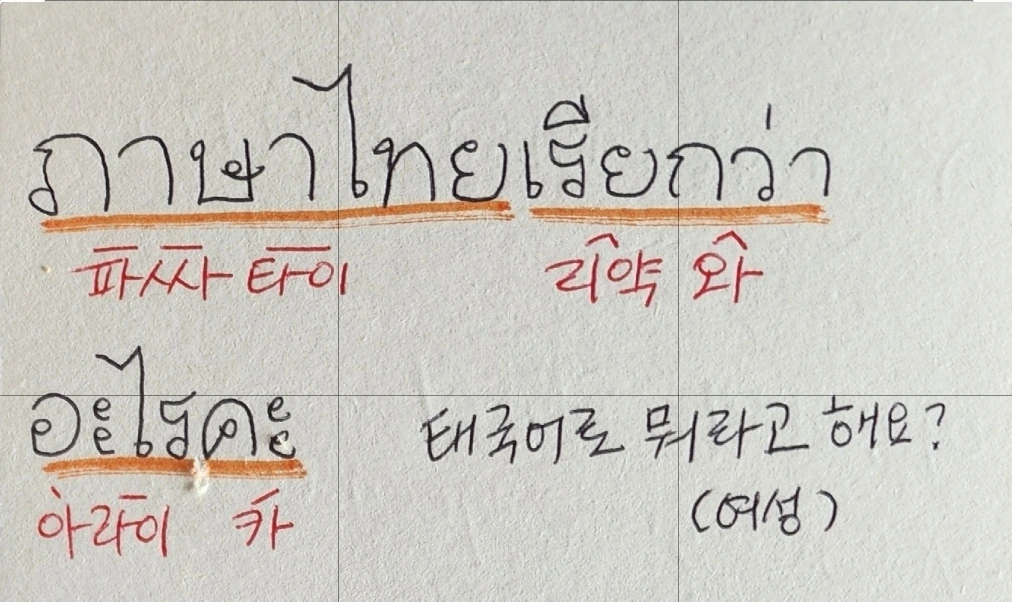 ภาษาไทยเรียกว่า
파싸 타이 리약 와
อะไรคะ 태국어로 뭐라고 해요?
아라이 카 (여성)